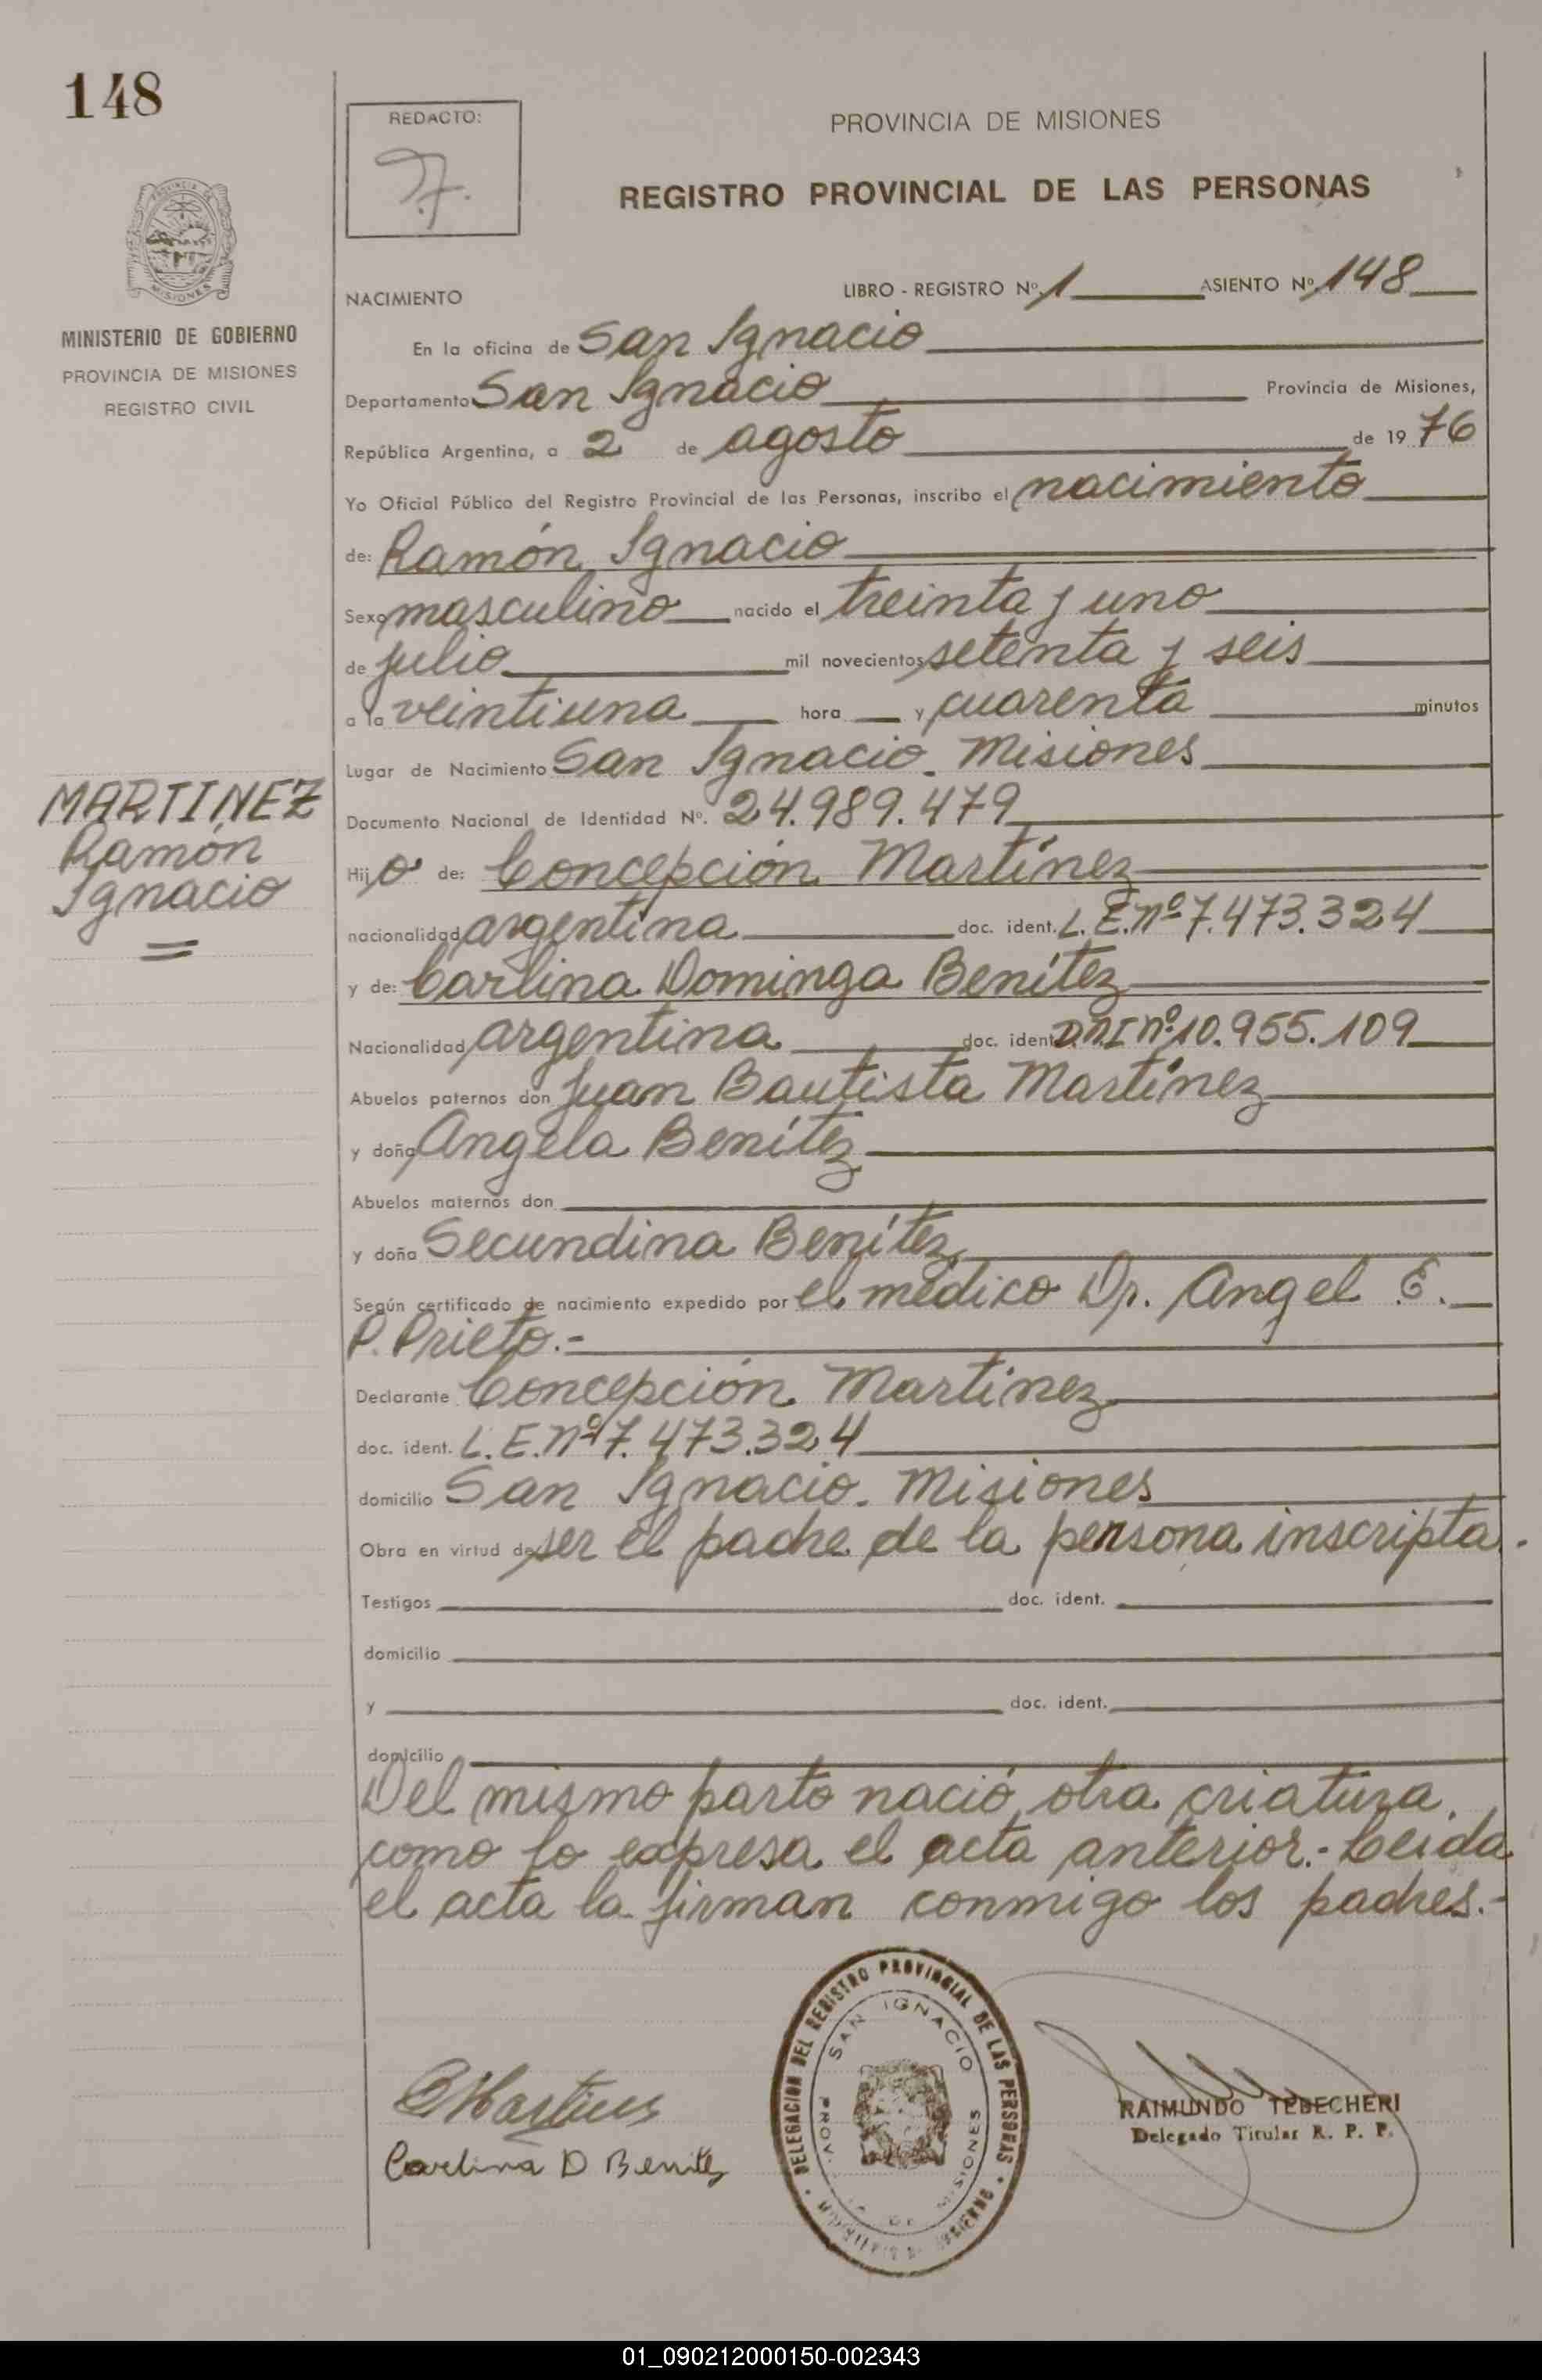 148
REDACTO:
PROVINCIA DE MISIONES
REGISTRO PROVINCIAL DE LAS PERSONAS
MISIONES
MINISTERIO DE GOBIERNO
PROVINCIA DE MISIONES
REGISTRO CIVIL
NACIMIENTO
LIBRO - REGISTRO Nº 1 ASIENTO Nº 148
En la oficina de San Ignacio
Departamento San Ignacio Provincia de Misiones,
República Argentina, a 2 de agosto de 1976
Yo Oficial Público del Registro Provincial de las Personas, inscribo el nacimiento
de: Ramón Ignacio
Sexo masculino nacido el treinta y uno
de julio mil novecientos setenta y seis
a la veintiuna hora y cuarenta minutos
Lugar de Nacimiento San Ignacio - Misiones
Documento Nacional de Identidad Nº. 24.989.479
MARTINEZ
Ramón
Ignacio
Hijo de: Concepción Martínez
nacionalidad argentina doc. ident. L.E. nº 7.473.324
y de: Carlina Dominga Benítez
Nacionalidad argentina doc. ident. D.N.I nº 10.955.109
Abuelos paternos don Juan Bautista Martínez
y doña Angela Benítez
Abuelos maternos don
y doña Secundina Benítez
Según certificado de nacimiento expedido por el médico Dr. Angel E.
P. Prieto.-
Declarante Concepción Martínez
doc. ident. L.E. nº 7.473.324
domicilio San Ignacio - Misiones
Obra en virtud de ser el padre de la persona inscripta.
Testigos doc. ident.
domicilio
y doc. ident.
domicilio
Del mismo parto nació otra criatura,
como lo expresa el acta anterior.- Leida
el acta la firman conmigo los padres.-
DELEGACION DEL REGISTRO PROVINCIAL DE LAS PERSONAS
SAN IGNACIO
PROV. DE MISIONES
C Martinez
Carlina D Benitez
RAIMUNDO TEBECHERI
Delegado Titular R. P. P.
01_090212000150-002343